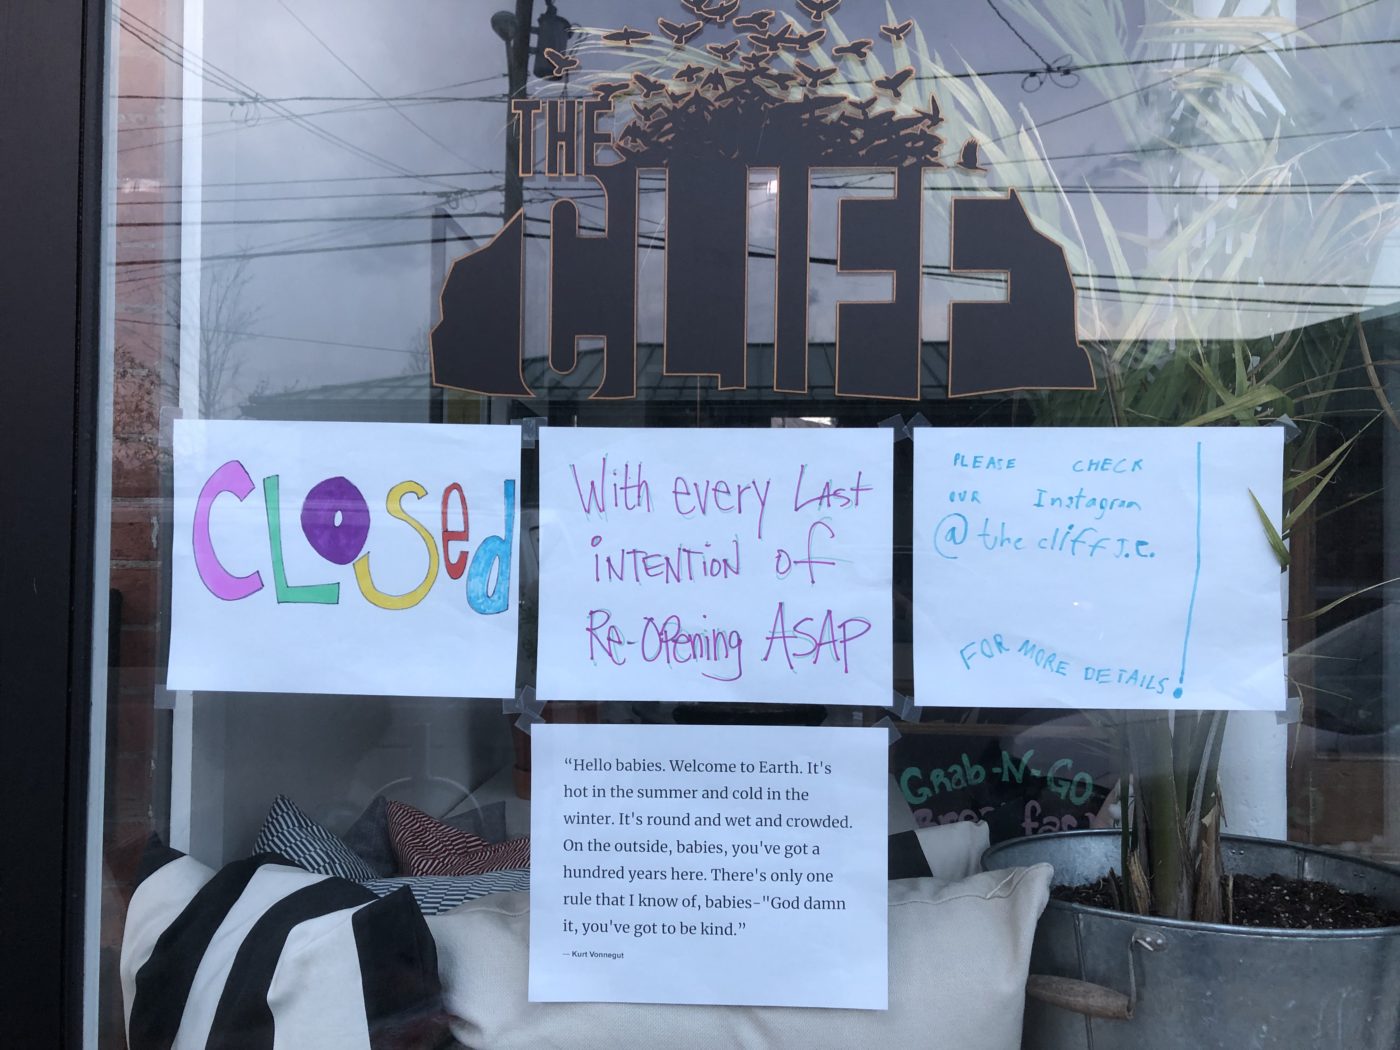 THE
CLIFF
CLOSed
With every LAst
INTENTION of
Re-Opening ASAP
PLEASE CHECK
OUR Instagram
@thecliffJ.C.
FOR MORE DETAILS!
“Hello babies. Welcome to Earth. It's
hot in the summer and cold in the
winter. It's round and wet and crowded.
On the outside, babies, you've got a
hundred years here. There's only one
rule that I know of, babies-"God damn
it, you've got to be kind.”
— Kurt Vonnegut
Grab-N-GO